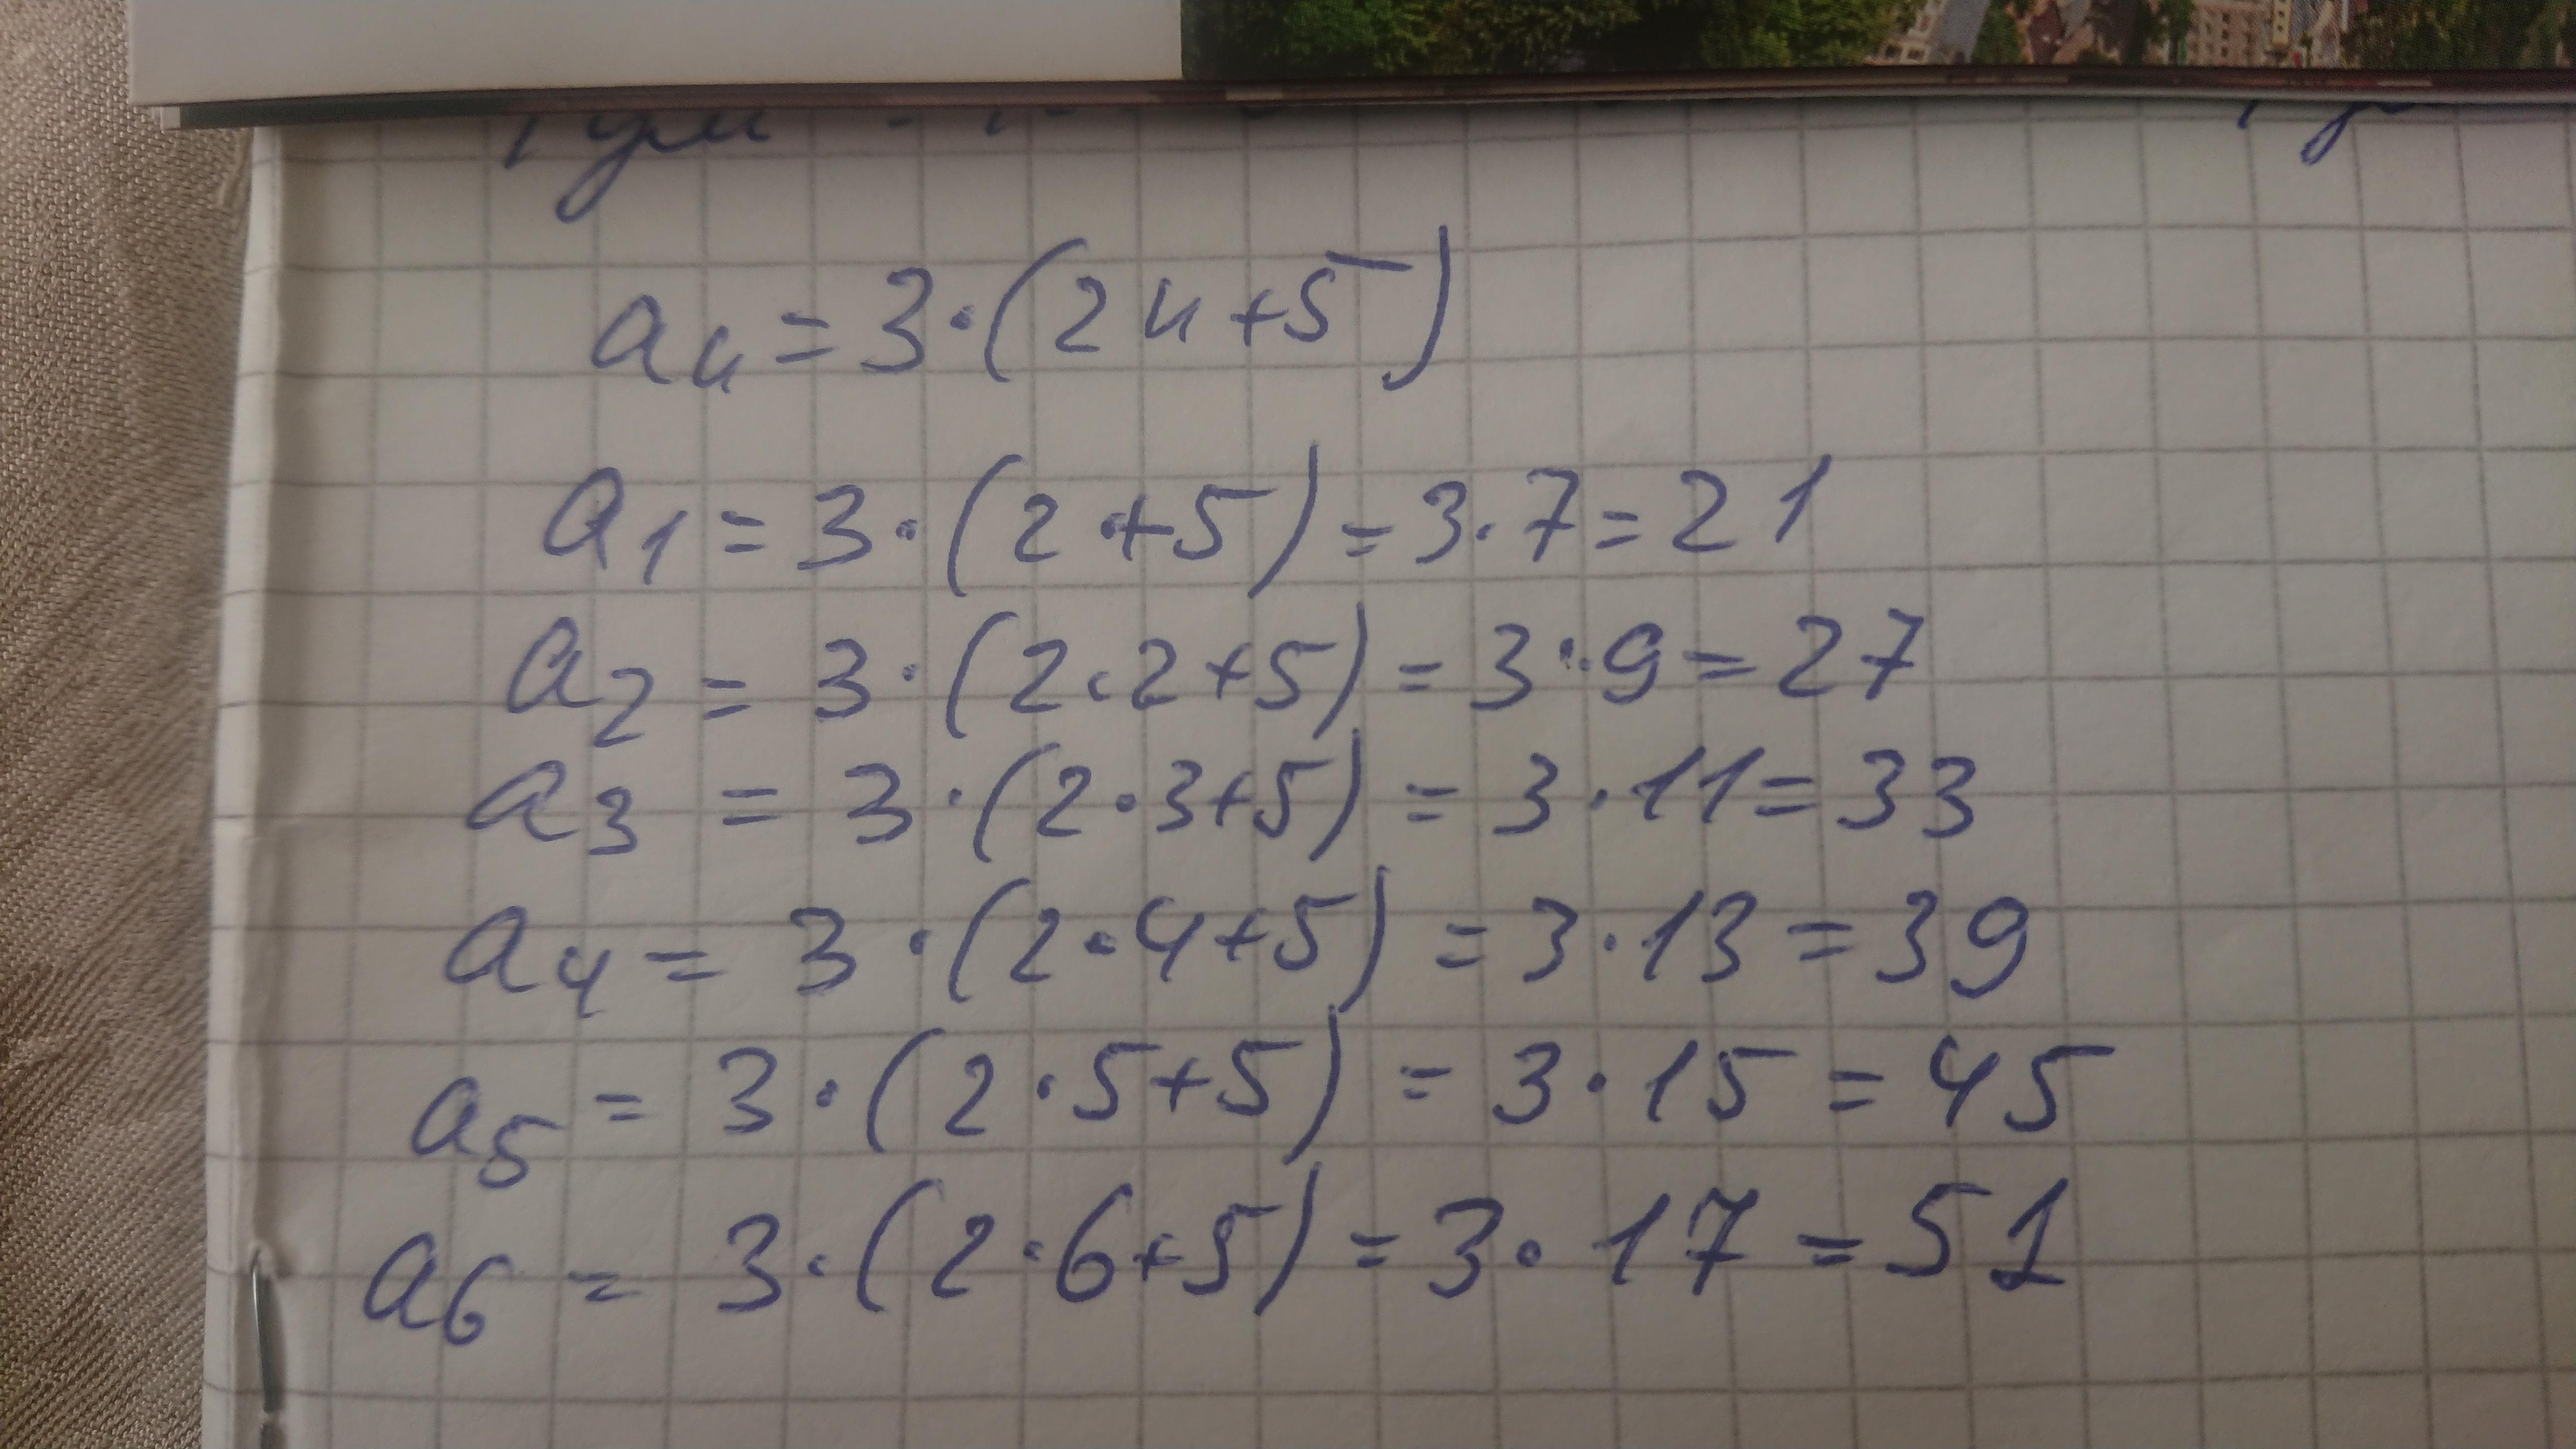 aₙ = 3·(2n+5)
a₁ = 3·(2·+5) = 3·7 = 21
a₂ = 3·(2·2+5) = 3·9 = 27
a₃ = 3·(2·3+5) = 3·11 = 33
a₄ = 3·(2·4+5) = 3·13 = 39
a₅ = 3·(2·5+5) = 3·15 = 45
a₆ = 3·(2·6+5) = 3·17 = 51